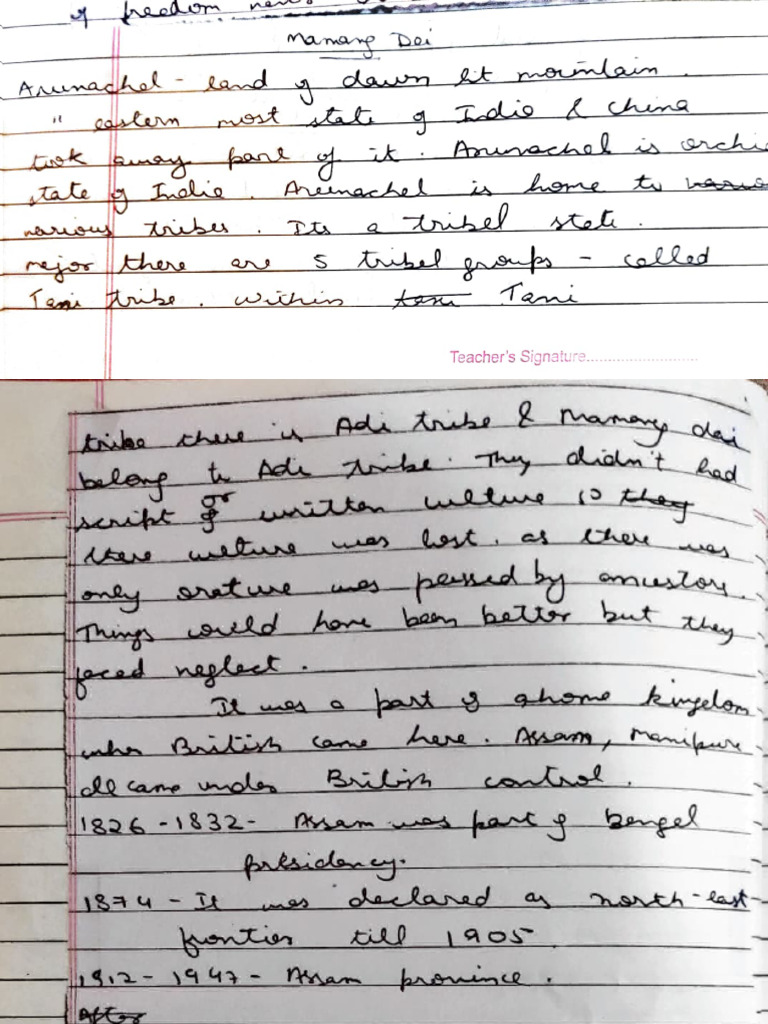 of freedom
Mamang Dai
Arunachal - land of dawn lit mountain.
" eastern most state of India & China
took away part of it. Arunachal is orchi
state of India. Arunachal is home to vario
various tribes. Its a tribal state.
major there are 5 tribal groups - called
Tani tribe. Within tani Tani
Teacher's Signature..........................
tribe there is Adi tribe & Mamang dai
belong to Adi tribe. They didn't had
script or written culture so they
there culture was lost. as there was
only orature was passed by ancestors.
Things could have been better but they
faced neglect.
It was a part of ahome kingdom
when British came here. Assam, Manipure
all came under British control.
1826 - 1832 - Assam was part of Bengal
presidency.
1874 - It was declared as north-east
frontier till 1905
1912 - 1947 - Assam province.
After